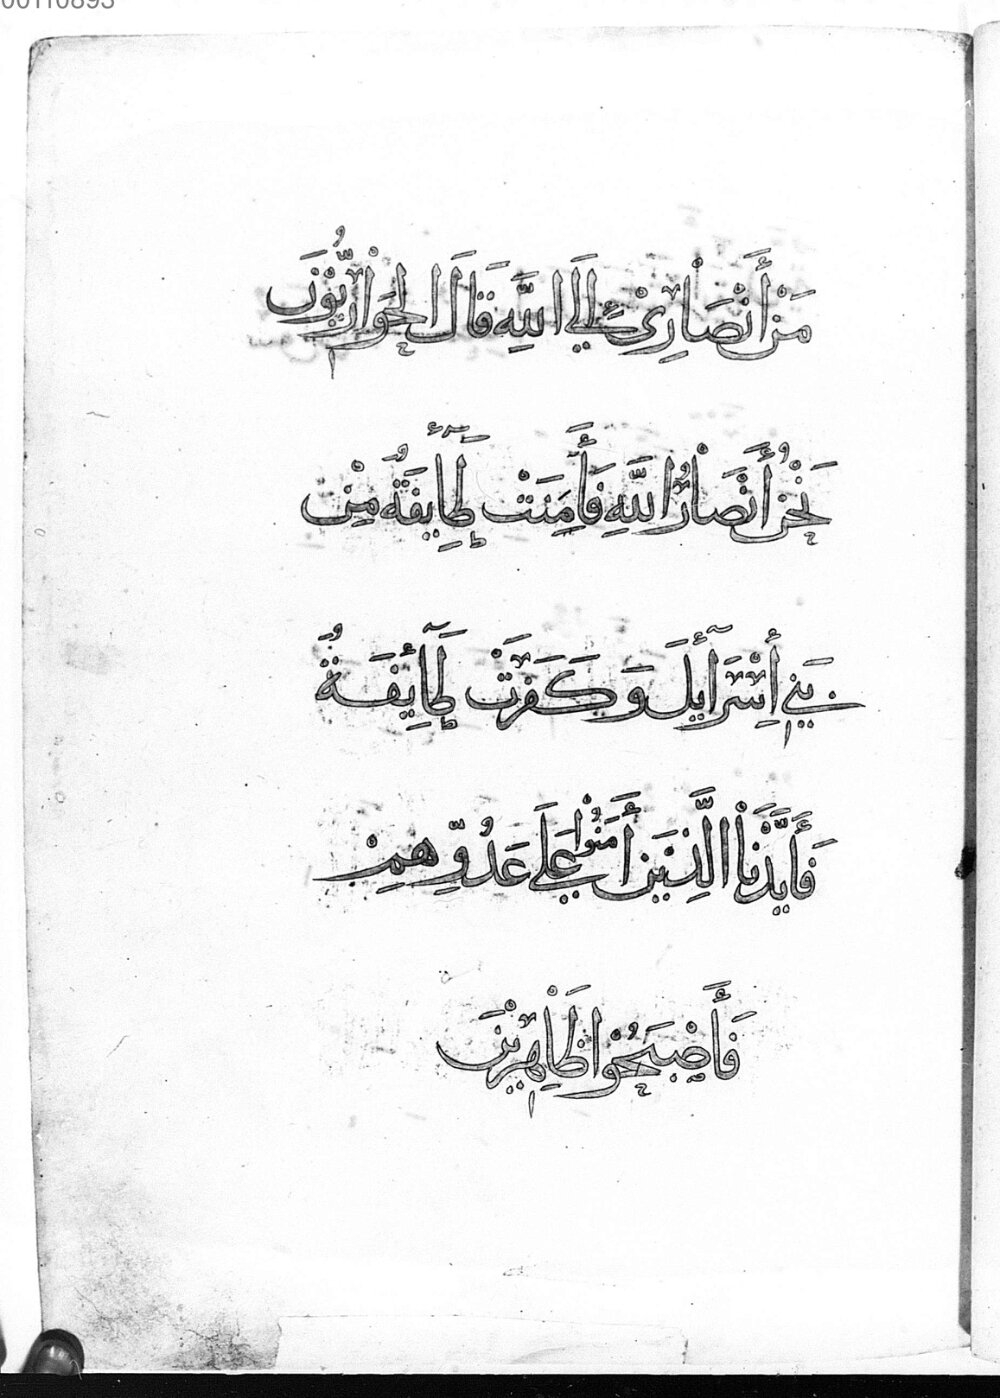 00110893
مَنْ أَنْصَارِيْ إِلَى اللَّهِ قَالَ الْحَوَارِيُّوْنَ
نَحْنُ أَنْصَارُ اللَّهِ فَأَمَنَتْ طَآئِفَةٌ مِنْ
بَنِي إِسْرَآئِلَ وَكَفَرَتْ طَآئِفَةٌ
فَأَيَّدْنَا الَّذِيْنَ أَمَنُوْا عَلَى عَدُوِّهِمْ
فَأَصْبَحُوْا ظَاهِرِيْنَ